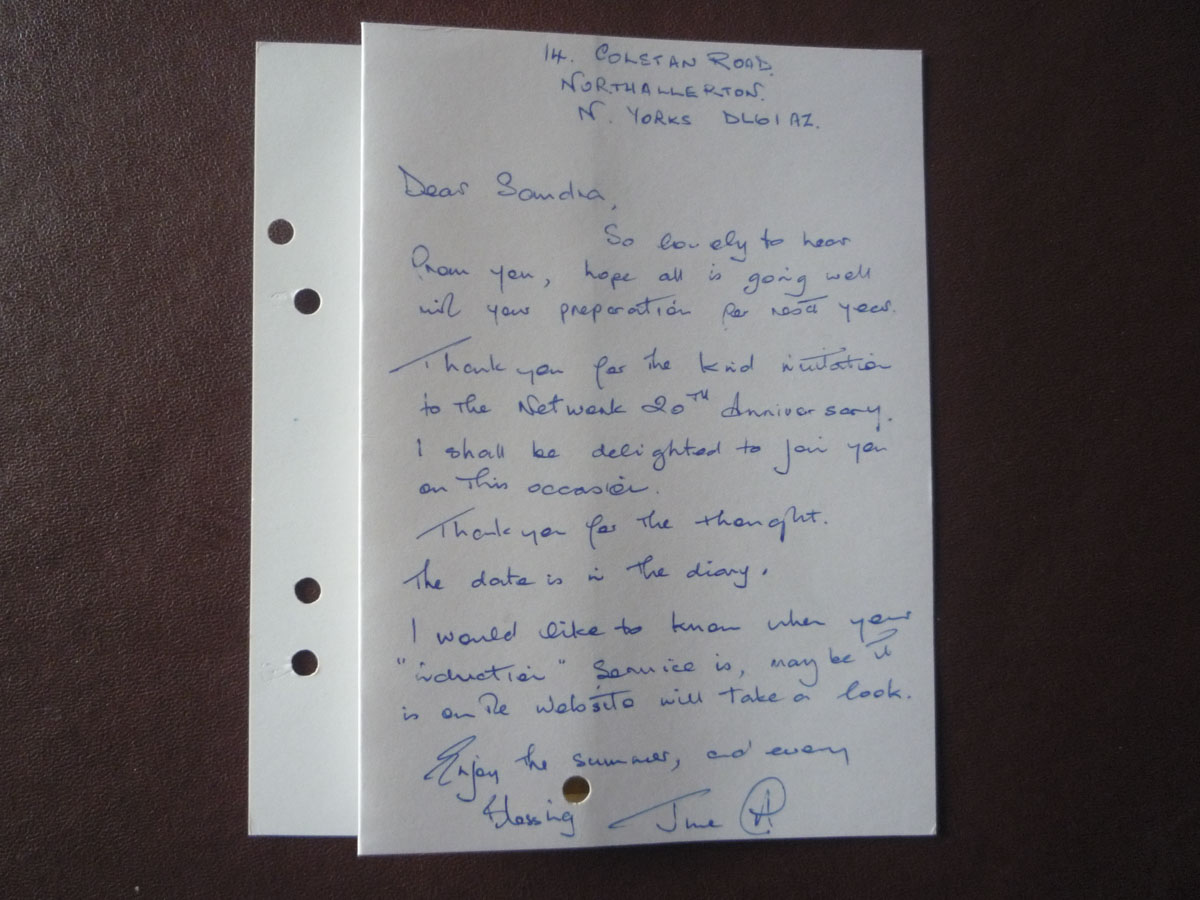 14. COLSTAN ROAD.
NORTHALLERTON.
N. YORKS DL6 1AZ.
Dear Sandra,
So lovely to hear
from you, hope all is going well
with your preparation for next year.
Thank you for the kind invitation
to the Network 20TH Anniversary.
I shall be delighted to join you
on this occasion.
Thank you for the thought.
The date is in the diary.
I would like to know when your
"induction" Service is, may be it
is on the website will take a look.
Enjoy the summer, and every
blessing June